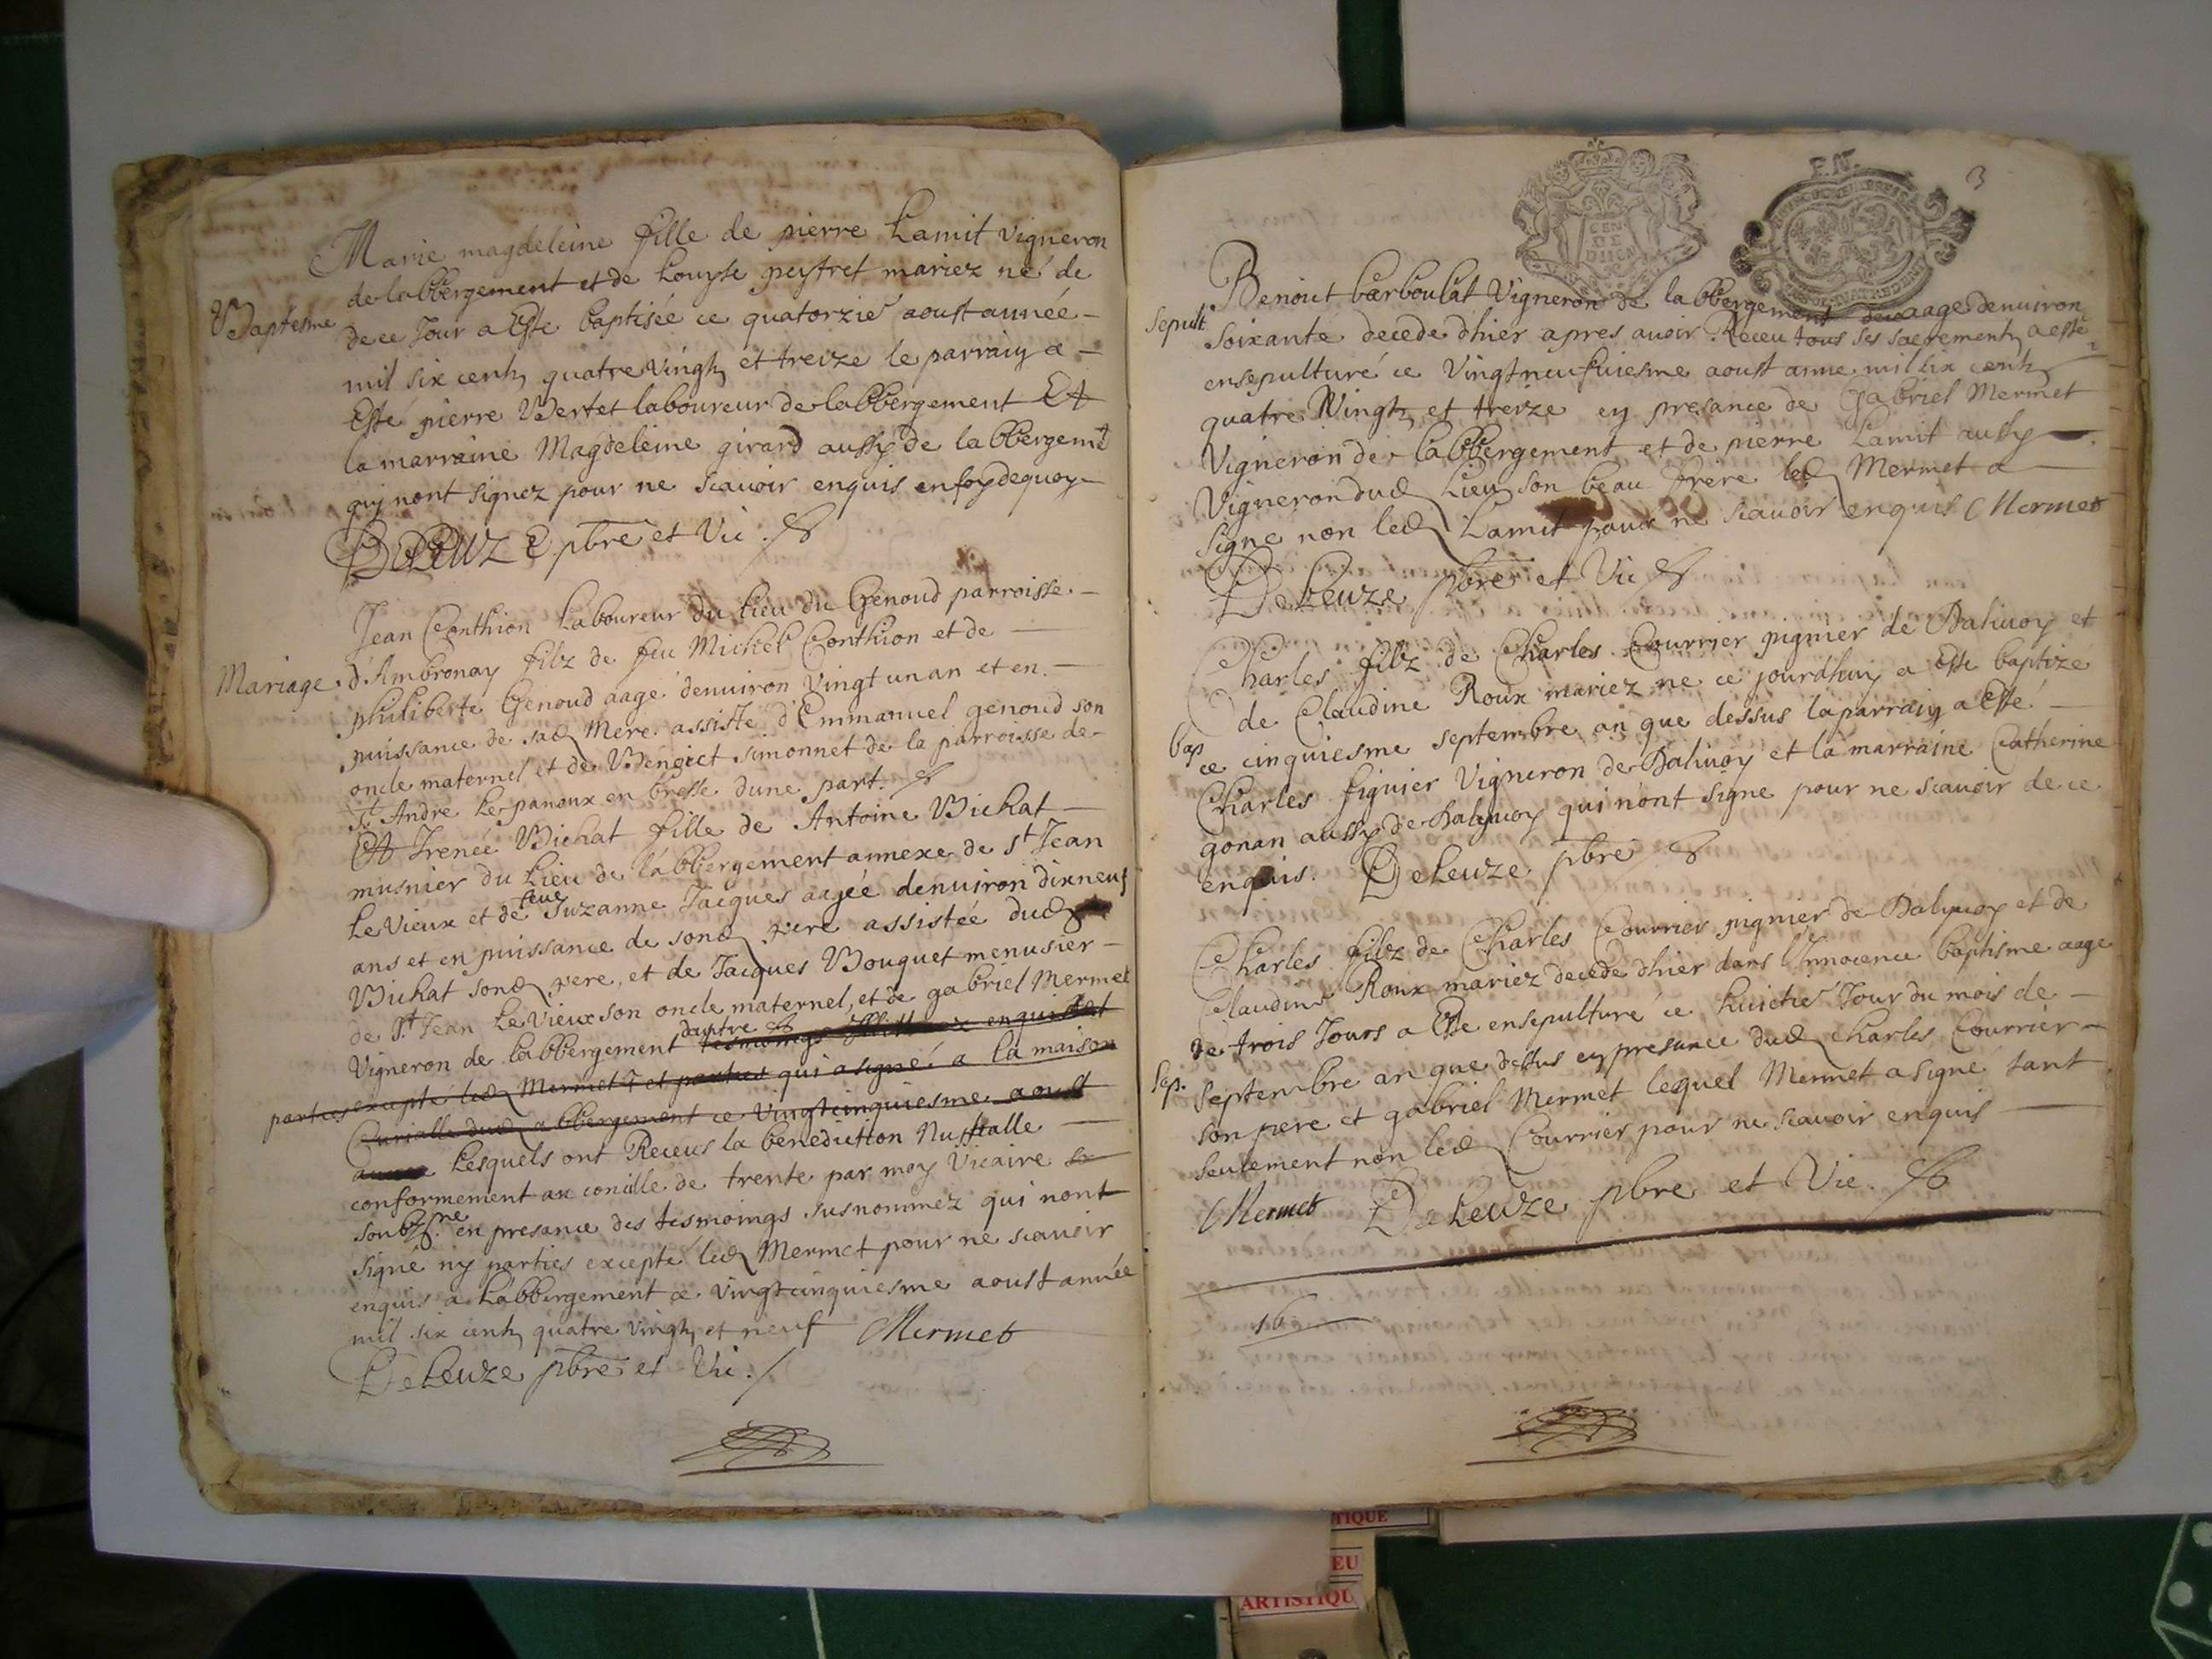 Marie magdeleine fille de pierre Lamit vigneron
de labbergement et de Louyse peystret mariez né de
Baptesme
de ce Jour a Esté baptisée ce quatorzie aoust année
mil six cents quatre vingts et treize le parrain a
Esté pierre Bertet laboureur de labbergement Et
la marraine Magdeleine girard aussy de labbergemt
qui nont signez pour ne scavoir enquis en foy de quoy
DeLeuze pbre et Vic.
Jean Conthion Laboureur du lieu du Genoud parroisse
Mariage
d'Ambronay filz de feu Michel Conthion et de
philiberte Genoud aagé denuiron vingt un an et en
puissance de sad Mere assisté d'Emmanuel genoud son
oncle maternel et de Benoict simonnet de la parroisse de
St André Le panoux en bresse dune part.
Et Irenée Bichat fille de Antoine Bichat
musnier du Lieu de labbergement annexe de st Jean
Le Vieux et de feue Suzanne Jacques aagée denuiron dixneuf
ans et en puissance de sond pere assistée dud
Bichat sond pere, et de Jacques Bouquet menusier
de St Jean Le Vieux son oncle maternel, et de gabriel Mermet
Vigneron de labbergement dautre enquis
parties excepté led Mermet et parties qui a signé a la maison
Curialle dud abbergement ce vingtcinquiesme aoust
Lesquels ont Receus la benediction Nuptialle
conformement au concille de trente par moy Vicaire
soubzsne en presance des tesmoings susnommez qui nont
signé ny parties excepté led Mermet pour ne scavoir
enquis a Labbergement ce vingtcinquiesme aoust année
mil six cents quatre vingts et neuf Mermet
DeLeuze pbre et Vic.
3
CEN
DE
DIJON
Benoit barboulat Vigneron de labbergement aage denuiron
sepult
soixante decede dhier apres auoir Receu tous ses sacrements a esté
ensepulturé ce Vingtneufuiesme aoust anne mil six cents
quatre Vingts et treize en presance de Gabriel Mermet
Vigneron de labbergement et de pierre Lamit aussy
Vigneron dud Lieu son beau frere led Mermet a
signe non led Lamit pour ne scauoir enquis Mermet
DeLeuze pbre et Vic
Charles filz de Charles Courrier pignier de Dalivoy et
de Claudine Roux mariez ne ce jourdhuy a Esté baptizé
bap
ce cinquiesme septembre an que dessus la parrain a Esté
Charles figuier Vigneron de Dalivoy et la marraine Catherine
gonan aussy de Dalivoy qui nont signe pour ne scauoir de ce
enquis. DeLeuze pbre
Charles filz de Charles Courrier pignier de Dalivoy et de
Claudine Roux mariez decede dhier dans l'Innocence baptisme aage
de trois Jours a Esté ensepulturé ce huictie Jour du mois de
sep.
septembre an que dessus en presance dud Charles Courrier
son pere et gabriel Mermet lequel Mermet a signé tant
seulement non led Courrier pour ne scauoir enquis
Mermet DeLeuze pbre et Vic.
16
TIQUE
EU
ARTISTIQU